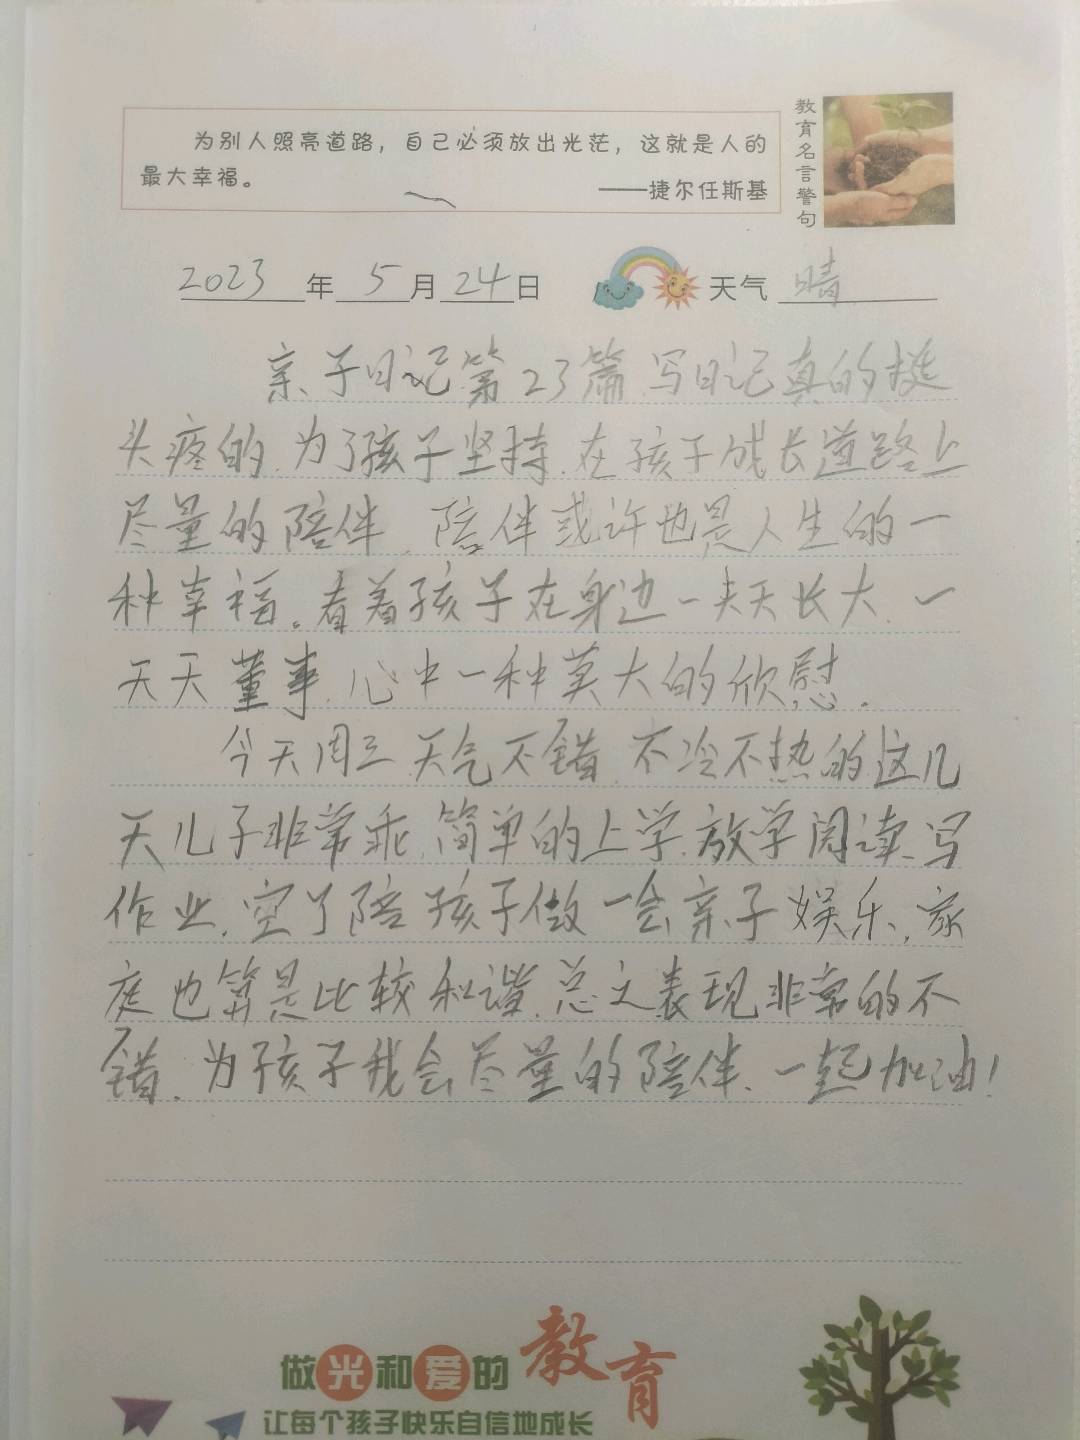 为别人照亮道路，自己必须放出光茫，这就是人的
最大幸福。
——捷尔任斯基
教育名言警句
2023年5月24日 天气 晴
亲子日记第23篇.写日记真的挺
头疼的.为了孩子坚持.在孩子成长道路上
尽量的陪伴.陪伴或许也是人生的一
种幸福。看着孩子在身边一天天长大.一
天天董事.心中一种莫大的欣慰.
今天周三.天气不错.不冷不热的.这几
天儿子非常乖.简单的上学.放学阅读.写
作业.空了陪孩子做一会亲子娱乐.家
庭也算是比较和谐.总之表现非常的不
错.为孩子我会尽量的陪伴、一起加油!
做光和爱的教育
让每个孩子快乐自信地成长